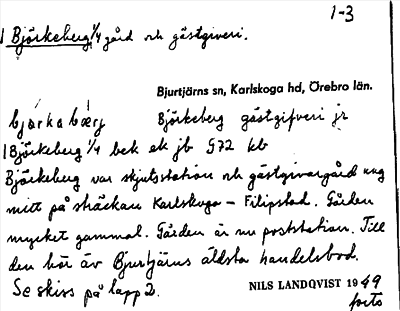 1-3
1 Björkeberg 1/4 gård och gästgiveri.
Bjurtjärns sn, Karlskoga hd, Örebro län.
bjørkabærj Björkeberg gästgifveri jr
1 Björkeberg 1/4 bek ek jb § 72 kb
Björkeberg var skjutsstation och gästgivargård ung
mitt på sträckan Karlskoga – Filipstad. Gården
mycket gammal. Gården är nu poststation. Till
den hör äv Bjurtjärns äldsta handelsbod.
Se skiss på lapp 2.
NILS LANDQVIST 1949
forts